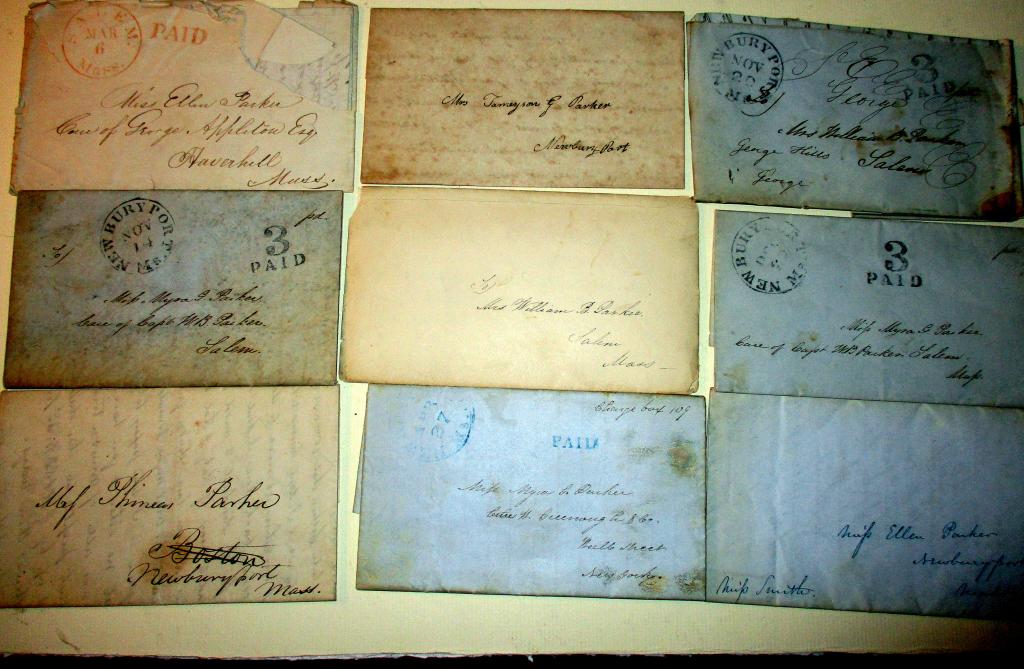 SALEM
MAR
6
Mass.
PAID
Miss Ellen Parker
Care of George Appleton Esq
Haverhill
Mass.
Mrs Tameyson G Parker
Newbury Port
NEWBURYPORT
NOV
Ms.
3
PAID
George
Mrs William B. Parker
George Hills
Salem
George
NEWBURYPORT
NOV
14
Ms.
pd.
To/
3
PAID
Miss Myra G Parker
Care of Capt WB Parker.
Salem.
To/
Mrs William B. Parker,
Salem
Mass
NEWBURYPORT
3
PAID
Miss Myra G Parker
Care of Capt WB Parker Salem.
Mass.
Phineas Parker
Boston
Newburyport
Mass.
27
Charge box 109
PAID
Miss Myra G. Parker
Care W. Greenough & Co.
Wall Street
New York.
Miss Ellen Parker
Newburyport
Miss Smith.